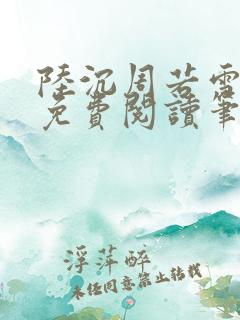 陸沉周若雪
免費閱讀筆
浮萍醉
未经同意禁止转载